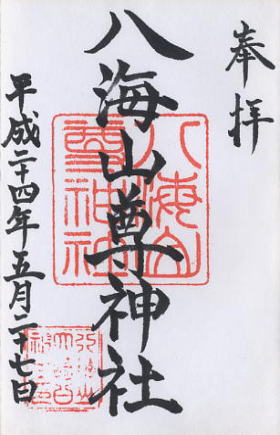 奉拝
八海山尊神社
平成二十四年五月二十七日
八海山
尊神社